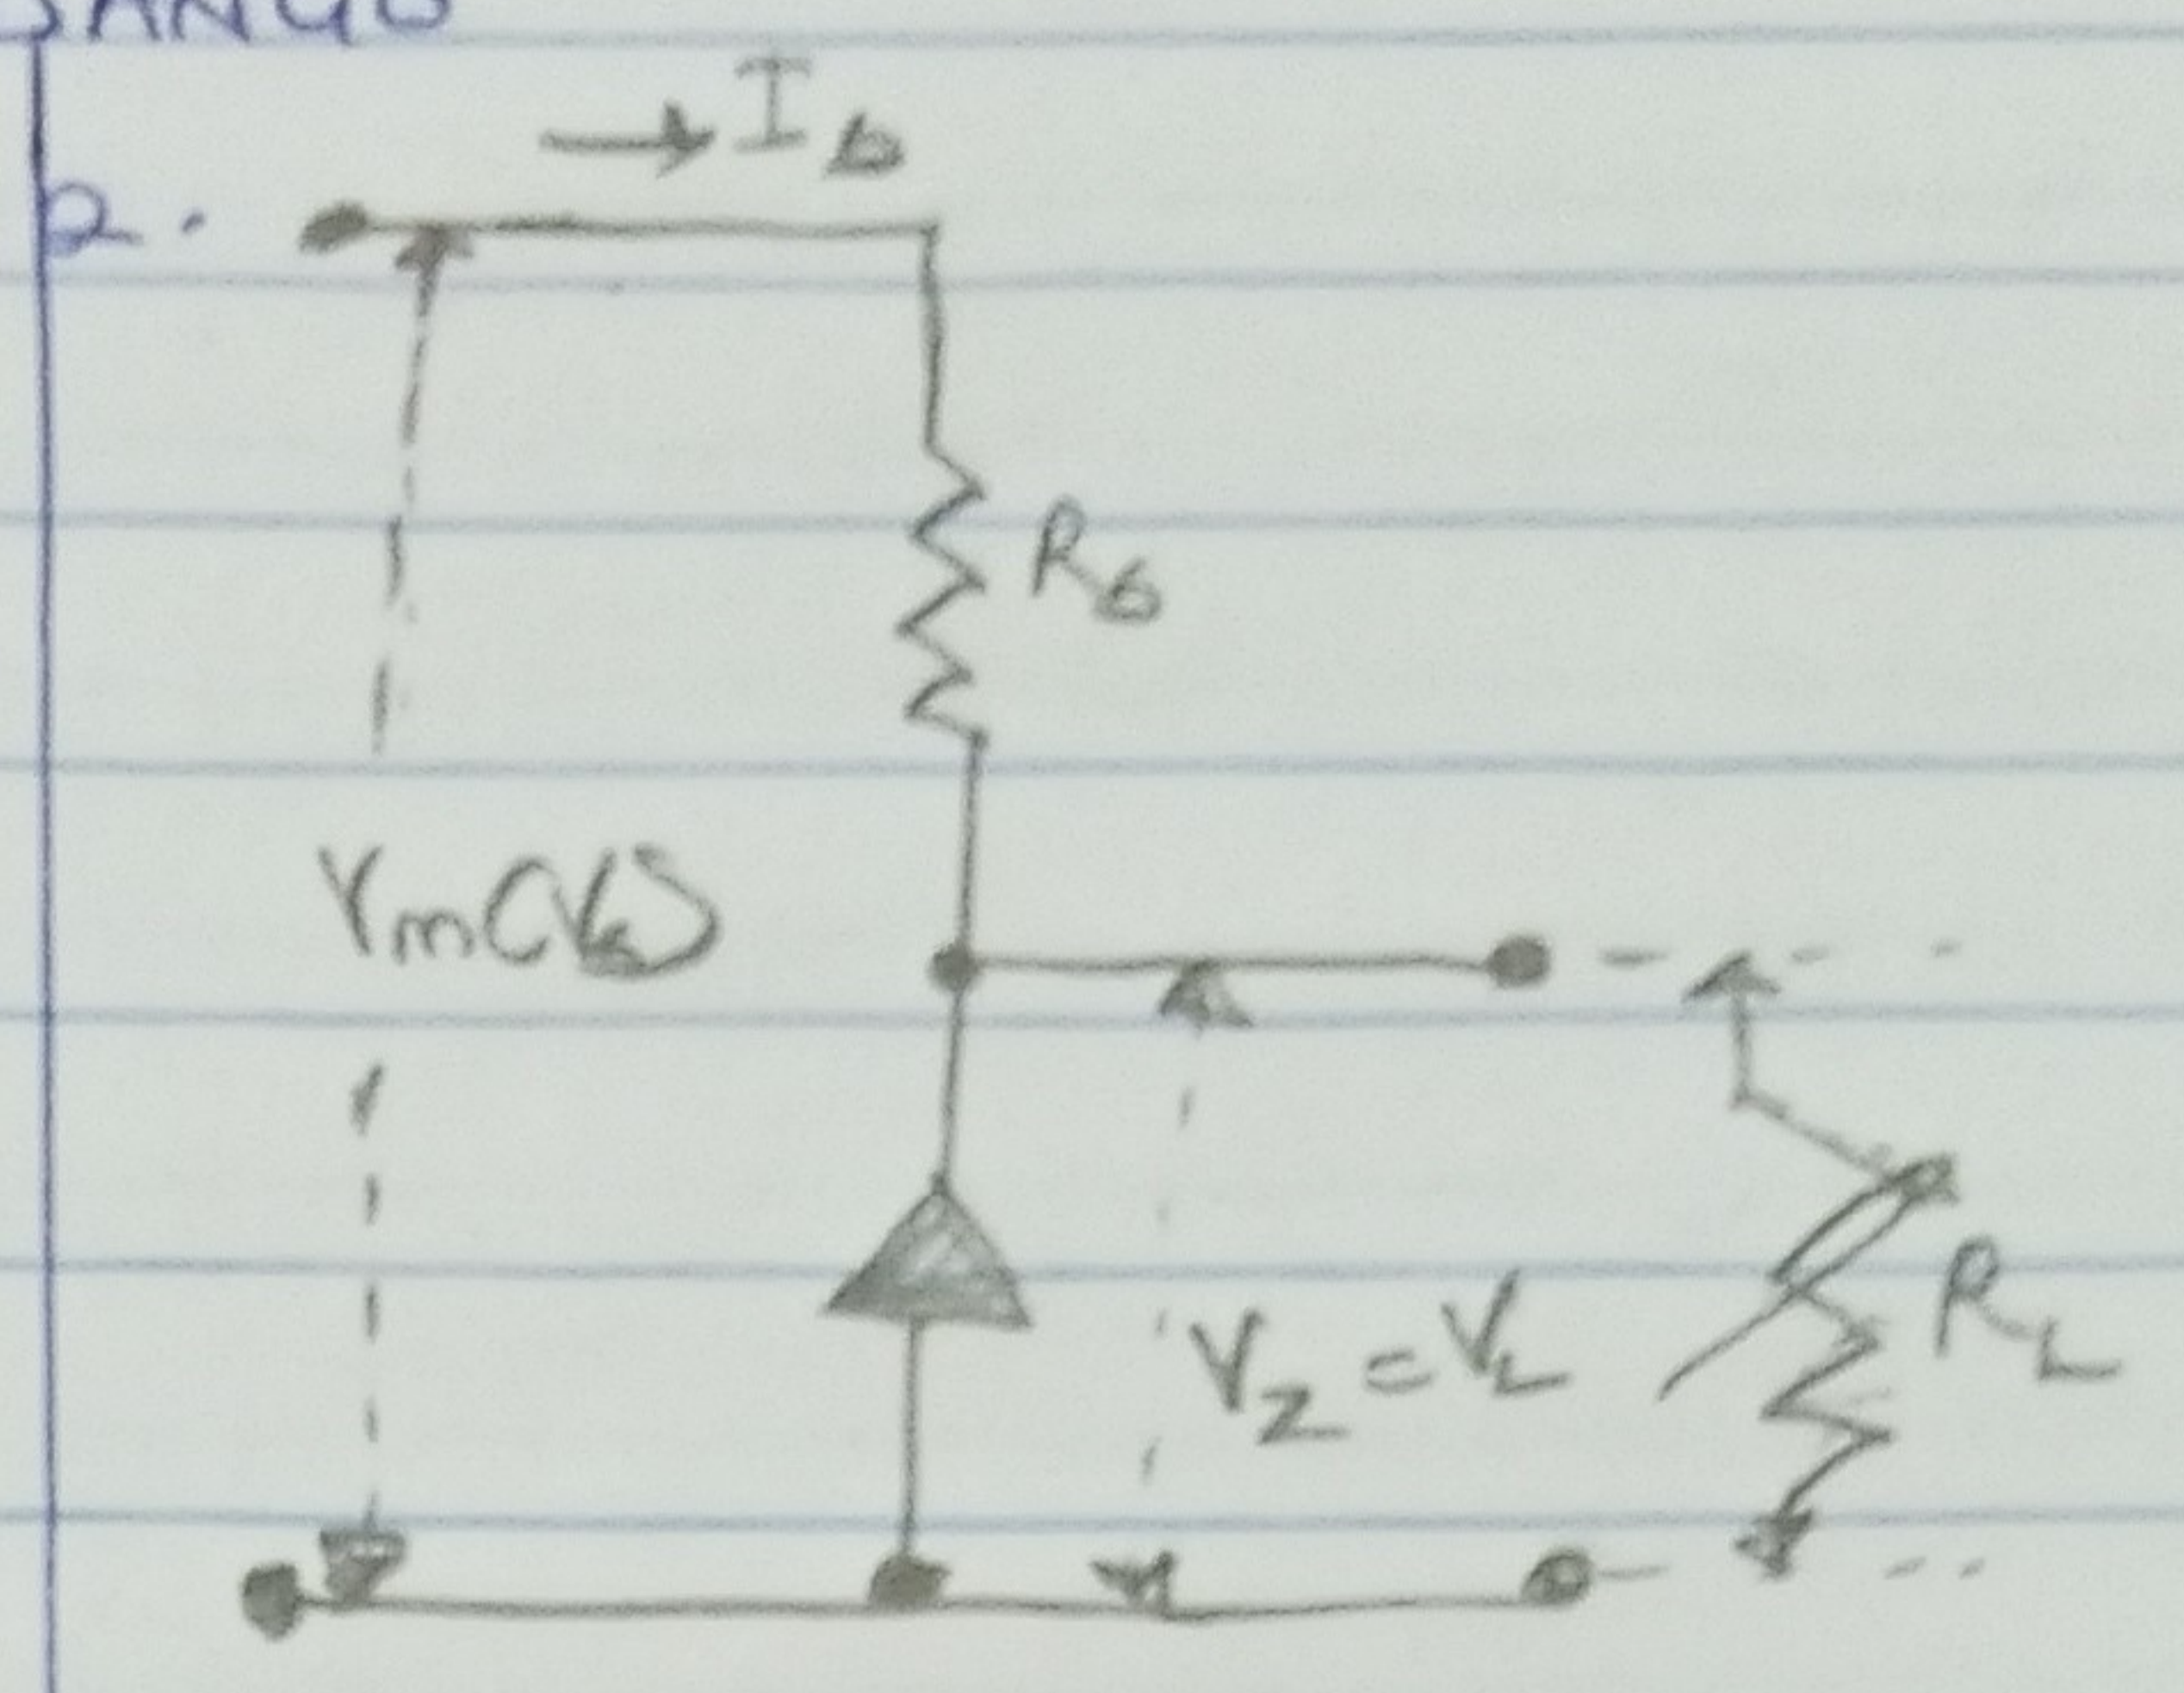 I b
2.
R6
Vm(Vs)
Vz = VL
RL